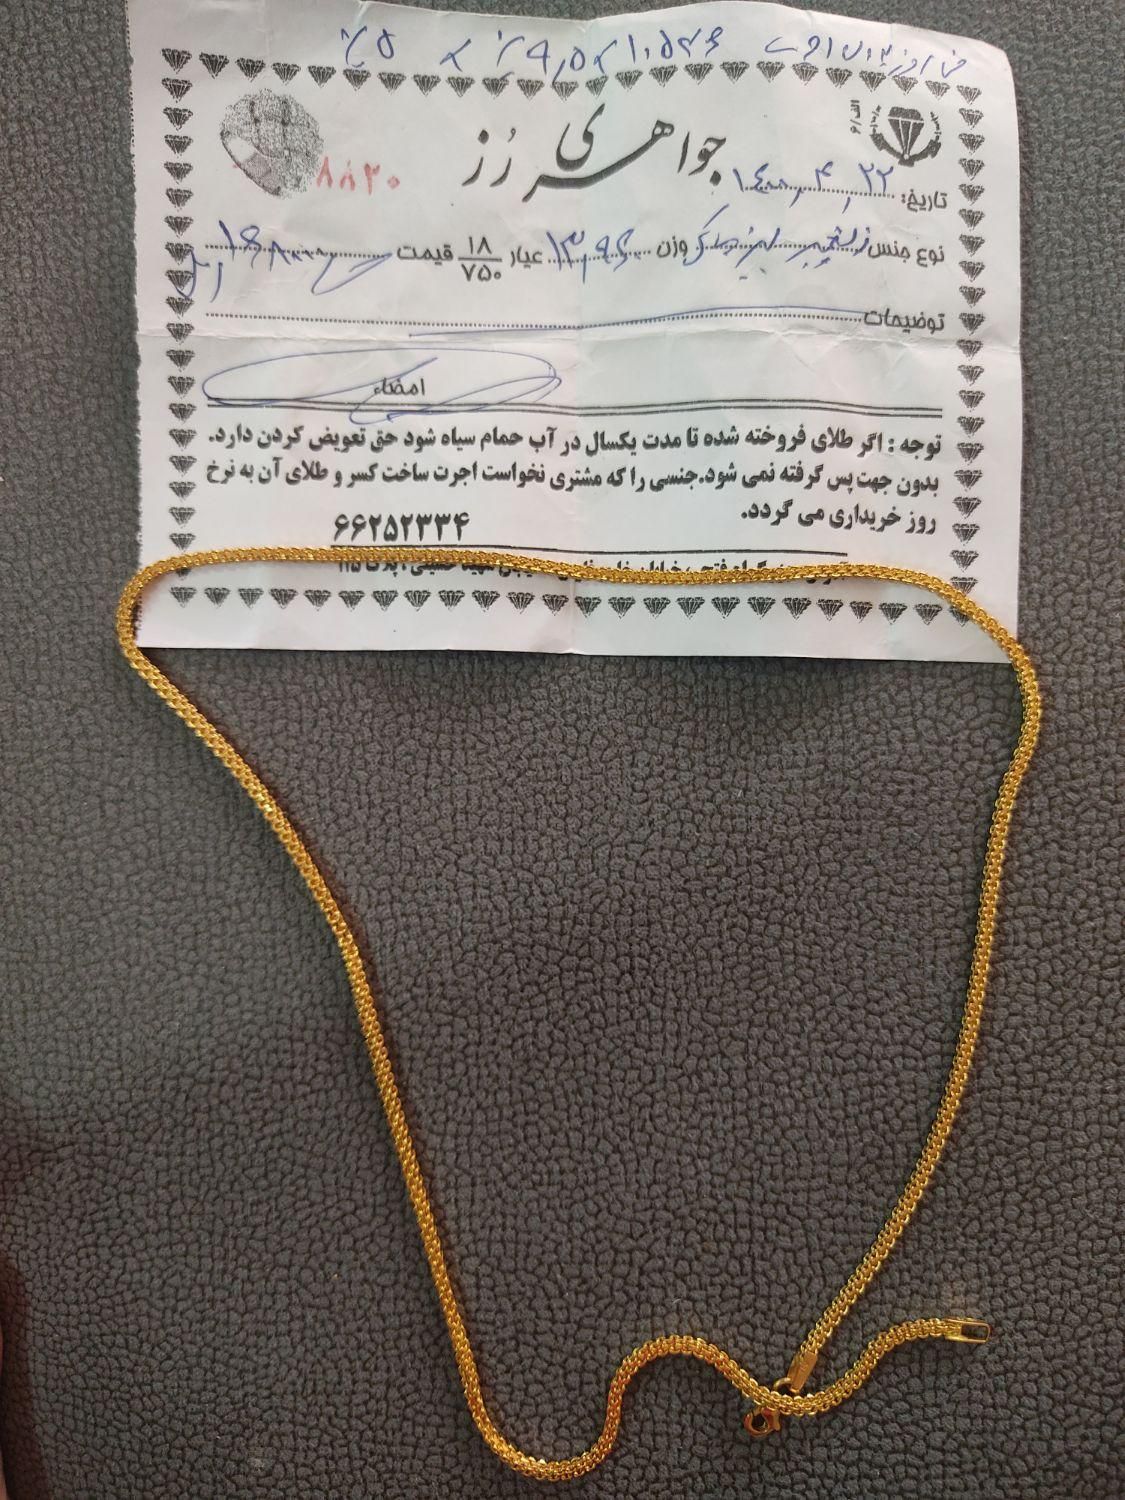 ۱۰۵۴۶ × ۹٫۵٪ × ۵٪
جواهری رُز
الف/۶
۸۸۲۰
تاریخ: ۲۲، ۴، ۱۴۰۰
نوع جنس زنجیر وزن ۱۳٫۹۴۰ عیار ۱۸/۷۵۰ قیمت
توضیحات
امضاء
توجه : اگر طلای فروخته شده تا مدت یکسال در آب حمام سیاه شود حق تعویض کردن دارد.
بدون جهت پس گرفته نمی شود.جنسی را که مشتری نخواست اجرت ساخت کسر و طلای آن به نرخ
روز خریداری می گردد.
۶۶۲۵۲۳۳۴